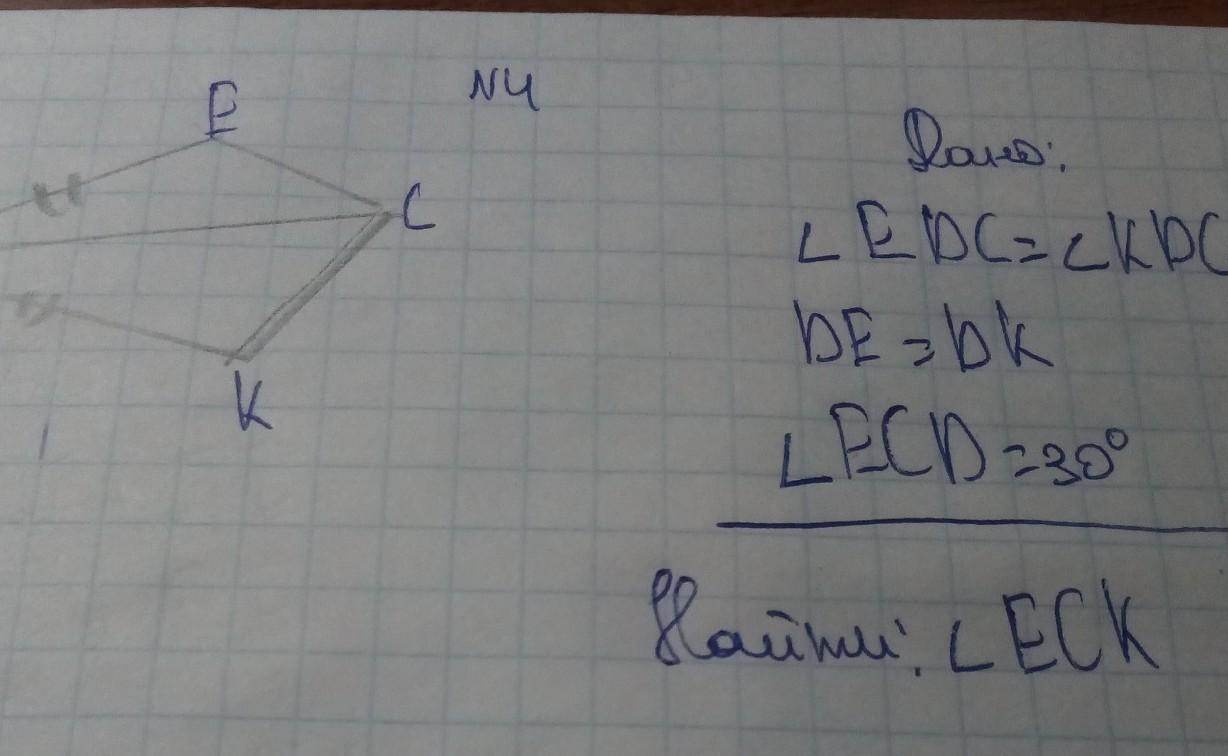 N4
E
C
K
Дано:
∠EDC=∠KDC
DE=DK
∠ECD=30°
Найти: ∠ECK